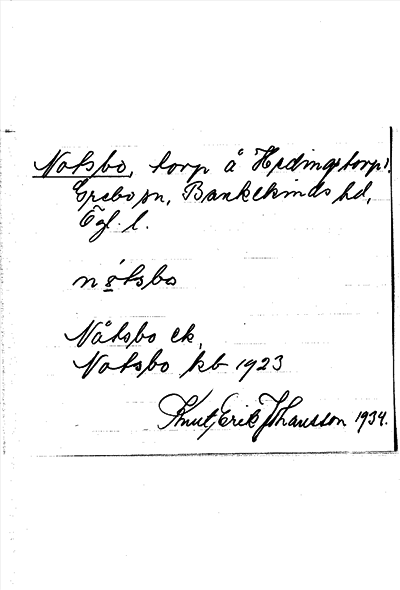 Notsbo, torp å Hedingstorp,
Grebo sn, Bankekinds hd,
Ögl. l.
nòtsbo
Nåtsbo ek,
Notsbo kb 1923
Knut Erik Johansson 1934.